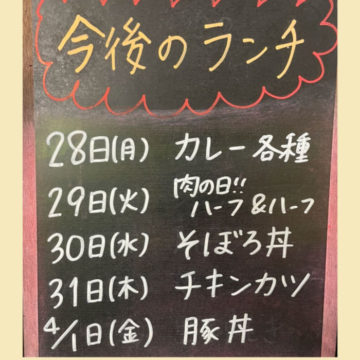 今後のランチ
28日(月) カレー各種
29日(火) 肉の日!!
ハーフ&ハーフ
30日(水) そぼろ丼
31日(木) チキンカツ
4/1日(金) 豚丼